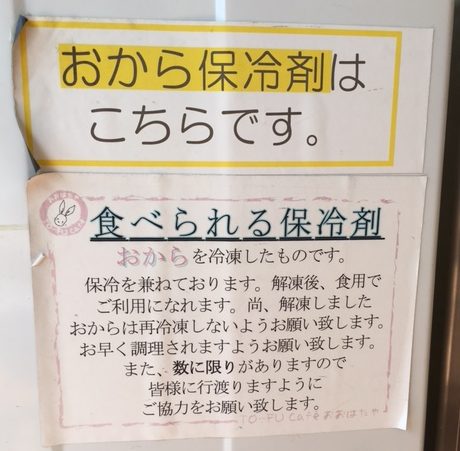 おから保冷剤は
こちらです。
食べられる保冷剤
おからを冷凍したものです。
保冷を兼ねております。解凍後、食用で
ご利用になれます。尚、解凍しました
おからは再冷凍しないようお願い致します。
お早く調理されますようお願い致します。
また、数に限りがありますので
皆様に行渡りますように
ご協力をお願い致します。
TO-FU Cafe おおはたや